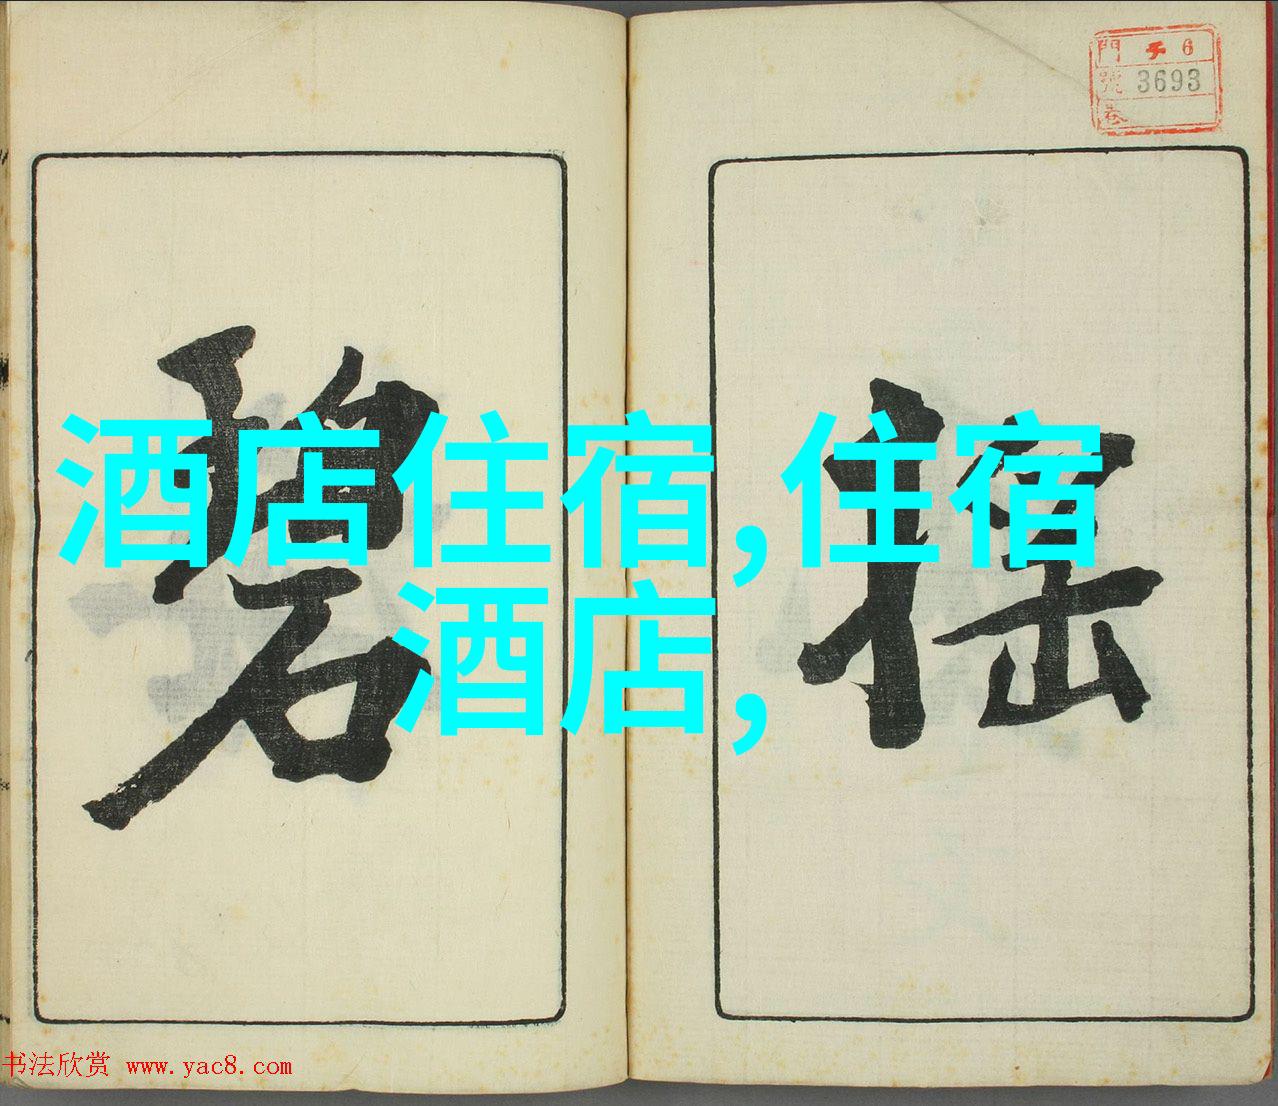 門 チ 6
號 3693
卷
搖
碧
酒店住宿,住宿
酒店,
书法欣赏 www.yac8.com